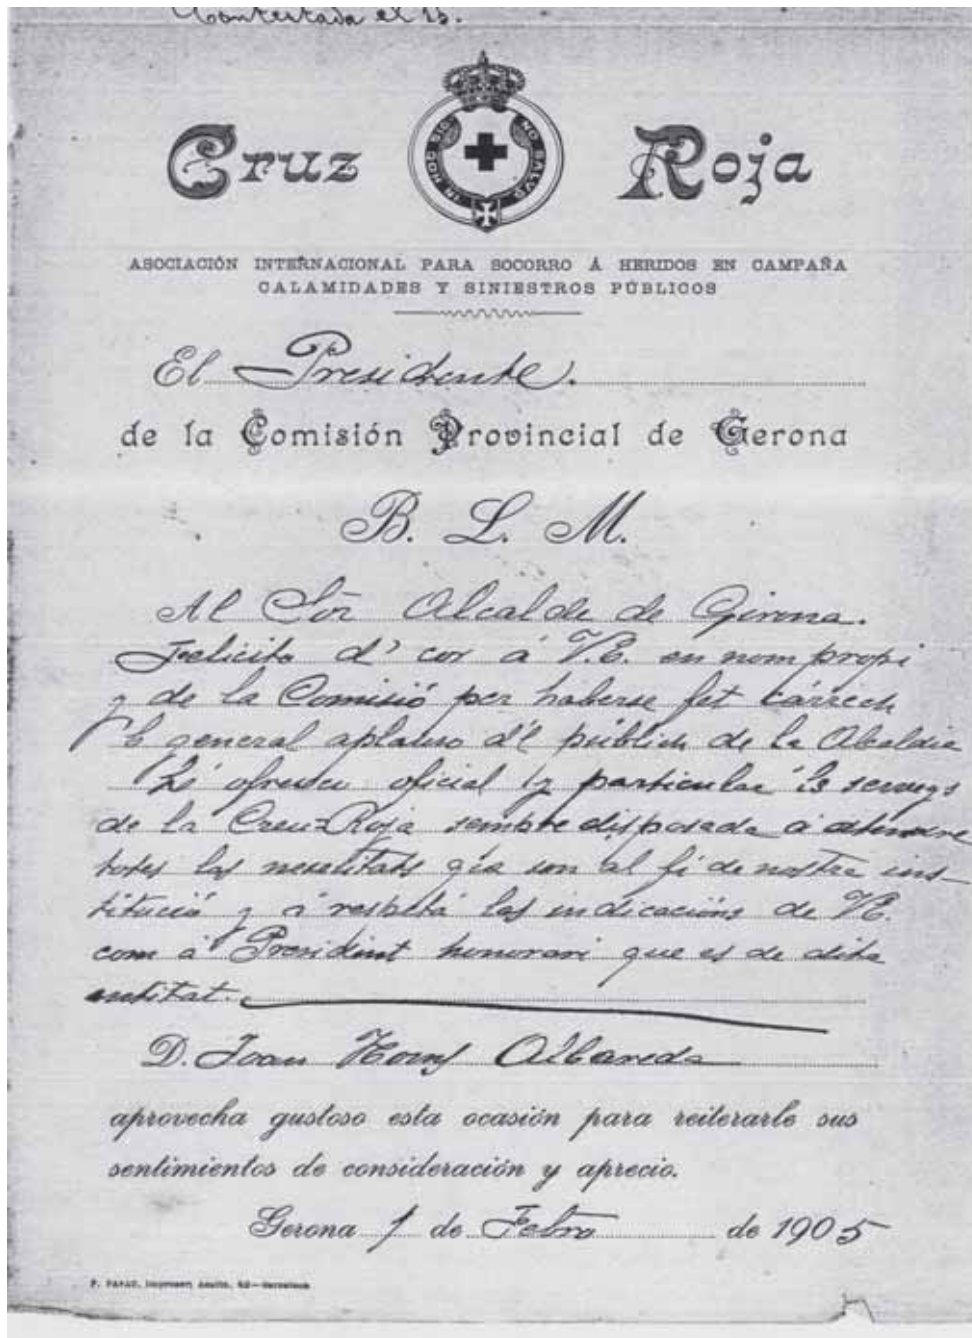 Contestada el 13.
Cruz Roja
IN HOC SIG NO SALUS
ASOCIACIÓN INTERNACIONAL PARA SOCORRO Á HERIDOS EN CAMPAÑA
CALAMIDADES Y SINIESTROS PÚBLICOS
El Presidente.
de la Comisión Provincial de Gerona
B. L. M.
Al Sor Alcalde de Girona.
Felicito d' cor á V.E. en nom propi
y de la Comisió per haberse fet cárrech
general aplauso d'l públich de la Alcaldia
Li ofresch oficial y particular ls serveys
de la Creu-Roja sempre disposada á atendre
totas las nesesitats son al fi de nostra ins-
titució y á respetá las indicacións de V.E.
com á President honorari que es de dita
entitat.
D. Joan Homs Albareda
aprovecha gustoso esta ocasión para reiterarle sus
sentimientos de consideración y aprecio.
Gerona 1 de Febro de 1905
Impresor, 62—Barcelona